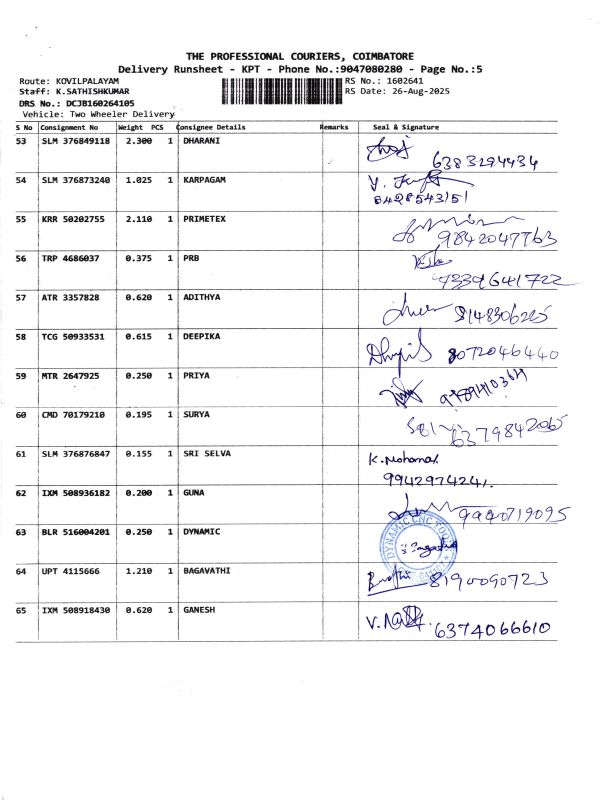 THE PROFESSIONAL COURIERS, COIMBATORE
Delivery Runsheet - KPT - Phone No.:9047080280 - Page No.:5
Route: KOVILPALAYAM RS No.: 1602641
Staff: K.SATHISHKUMAR RS Date: 26-Aug-2025
DRS No.: DCJB160264105
Vehicle: Two Wheeler Delivery
S No Consignment No Weight PCS Consignee Details Remarks Seal & Signature
53 SLM 376849118 2.300 1 DHARANI
6383294434
54 SLM 376873240 1.025 1 KARPAGAM
8428543151
55 KRR 50202755 2.110 1 PRIMETEX
9842047763
56 TRP 4686037 0.375 1 PRB
9339641722
57 ATR 3357828 0.620 1 ADITHYA
8148306225
58 TCG 50933531 0.615 1 DEEPIKA
8072046440
59 MTR 2647925 0.250 1 PRIYA
60 CMD 70179210 0.195 1 SURYA
6379842065
61 SLM 376876847 0.155 1 SRI SELVA
K. Mohana
9942974241.
62 IXM 508936182 0.200 1 GUNA
9990719095
63 BLR 516004201 0.250 1 DYNAMIC
DYNAMIC CNC
64 UPT 4115666 1.210 1 BAGAVATHI
8190090723
65 IXM 508918430 0.620 1 GANESH
6374066610